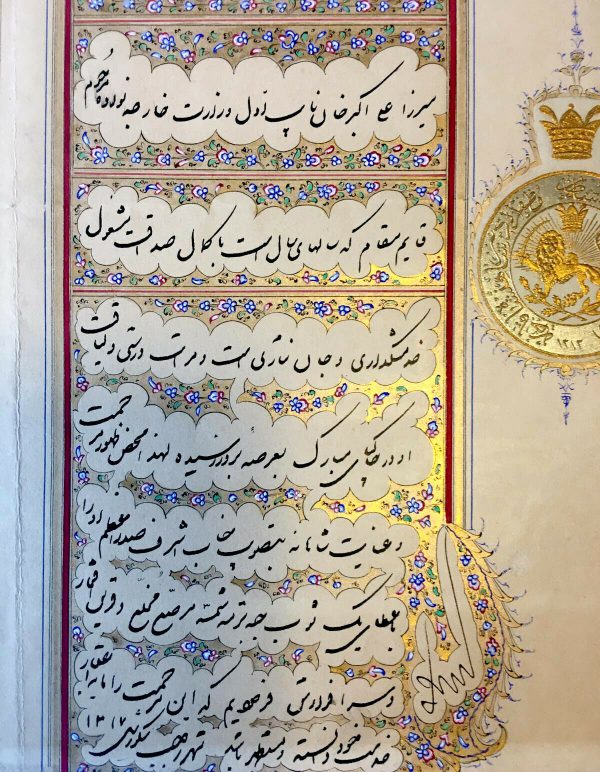 میرزا علی اکبر خان نایب اول وزارت خارجه نواده مرحوم
قایم مقام که سالهای سال است با کمال صداقت مشغول
خدمتگذاری و جان نثاری است و مراتب درستی و لیاقت
او در خاکپای مبارک بعرصه بروز رسیده لهذا محض ظهور مرحمت
و عنایت شاهانه بتصویب جناب اشرف صدراعظم او را
باعطای یک ثوب جبه ترمه شمسه مرصع مخلع و قرین افتخار
و سرافرازی فرمودیم که این مرحمت را مایه
خدمت خود دانسته و مستظهر باشد شهر رجب ۱۳۱۷
۱۳۱۳